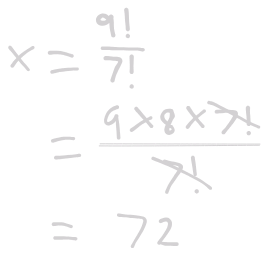 x = 9!/7!
= 9 × 8 × 7!/7!
= 72